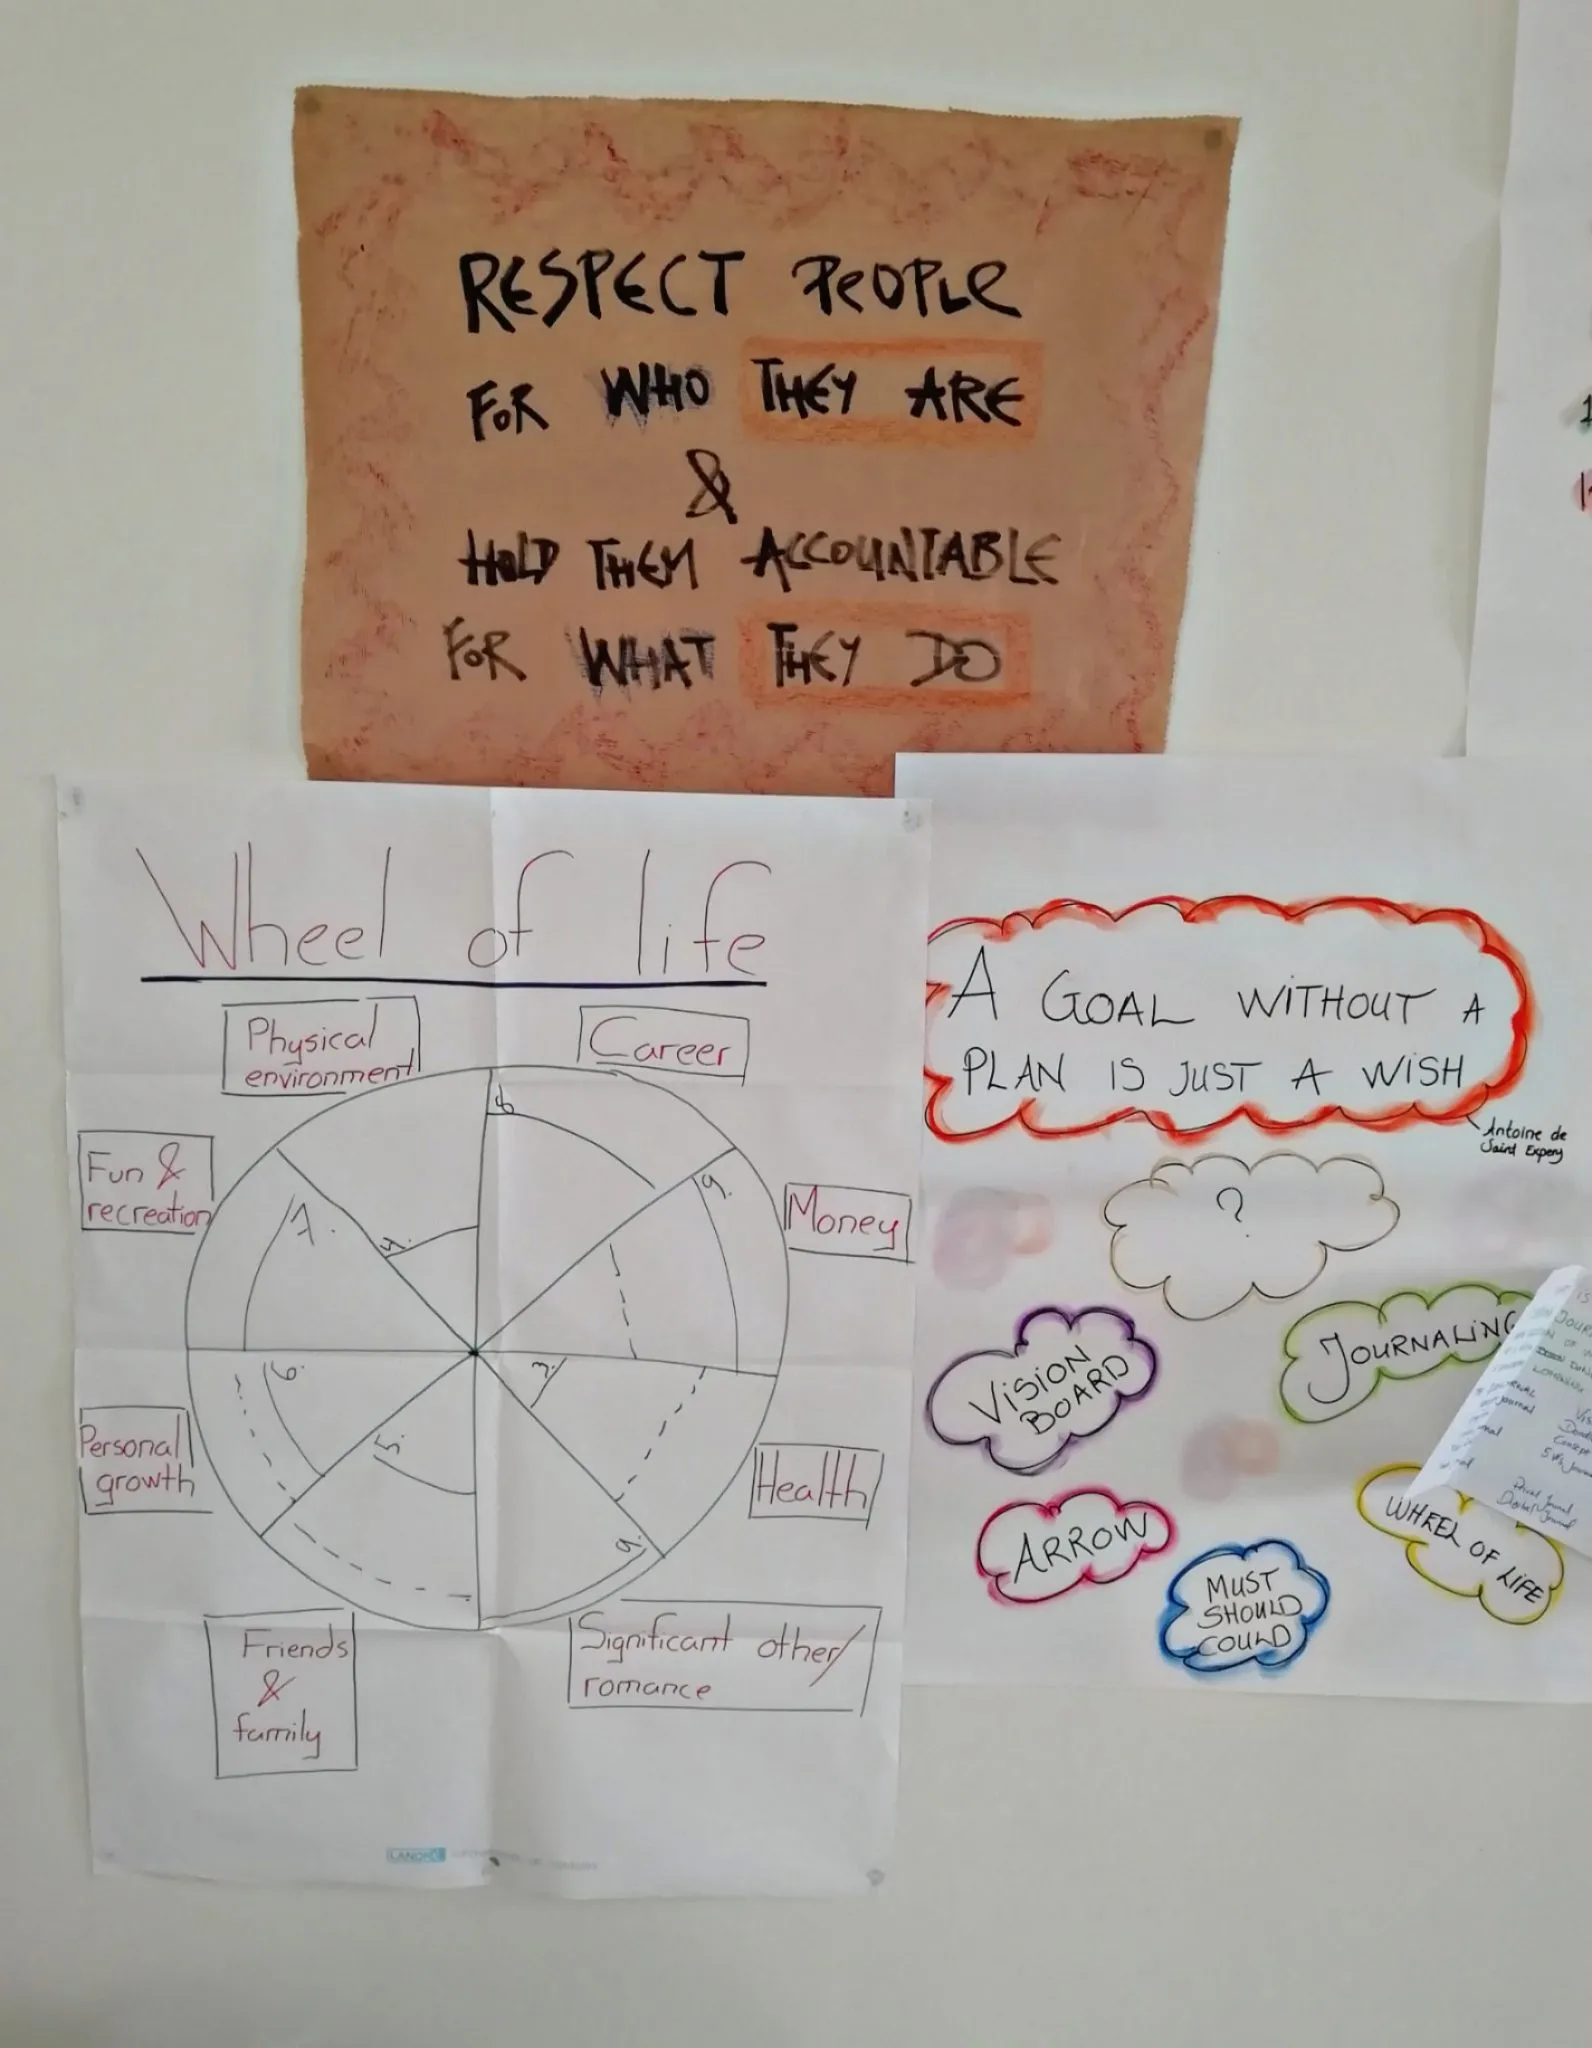 RESPECT PEOPLE
FOR WHO THEY ARE
&
HOLD THEM ACCOUNTABLE
FOR WHAT THEY DO
Wheel of life
Physical
environment
Career
Fun &
recreation
Money
Personal
growth
Health
Friends
&
family
Significant other/
romance
8
9.
7.
4.
6.
5.
3.
9.
A GOAL WITHOUT A
PLAN IS JUST A WISH
Antoine de
Saint Expery
?
VISION
BOARD
JOURNALING
ARROW
MUST
SHOULD
COULD
WHEEL OF LIFE